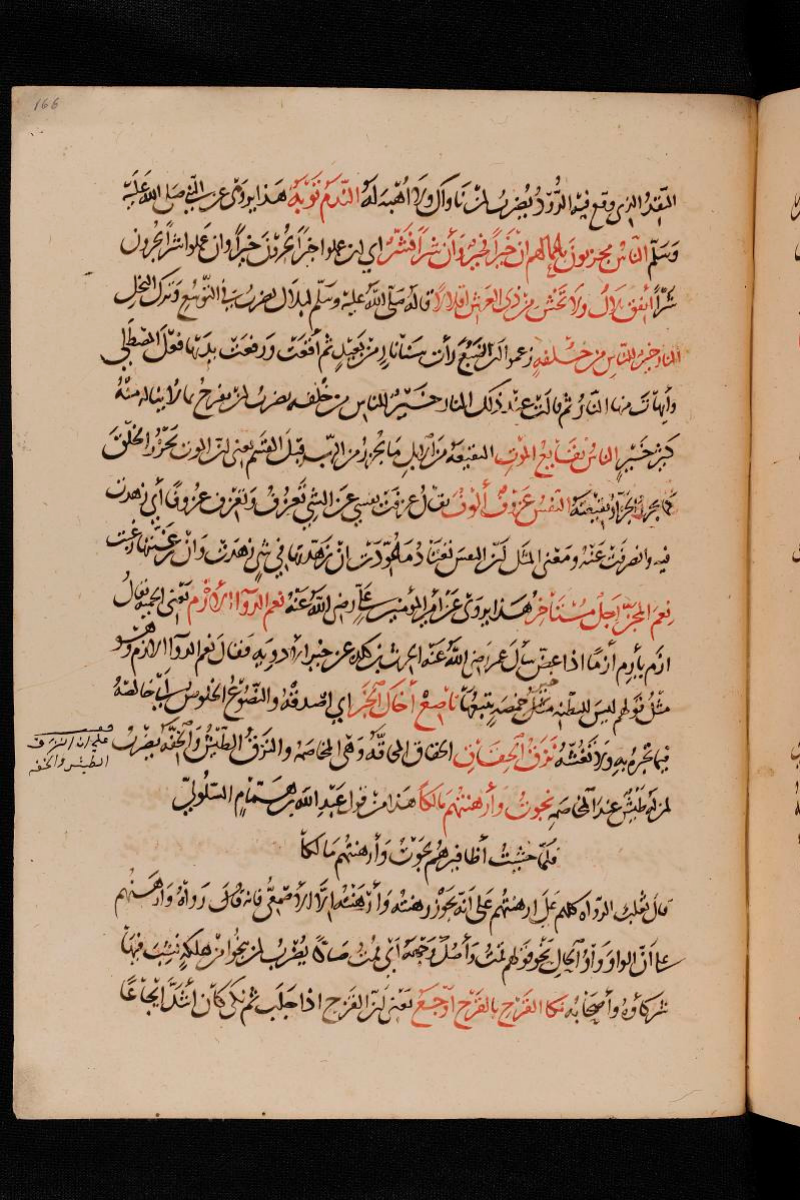 166
النقد الذي وقع فيه الرد يضرب لمن ناواك ولا أهبة له الندم توبة هذا يروى عن النبي صلى الله عليه
وسلم الناس مجزيون بأعمالهم ان خيرا فخير وأن شرا فشر اي ان عملوا خيرا يجزون خيرا وان عملوا شرا يجزون
شرا أنفق بلال ولا تخش من ذي العرش اقلالا قاله صلى الله عليه وسلم لبلال يضرب في التوسع وترك البخل
النار خير للناس من خلفه زعموا ان الضبع رأت سنا نار من بعيد ثم أقعت ورفعت يديها فعل المصطلي
وأبهأت منها النار ثم قالت عند ذلك النار خير للناس من خلفه يضرب لمن يفرح بما لا يناله منه
كبير خير الناس نقائع الموت النقيعة من الابل ما يجزر من النهب قبل القسم يعنى ان الموت يجزر الخلق
كما يجزر الجزار نقيعته النفس عزوف ألوف يقال عزفت نفسي عن الشي تعزف وتعزف عزوفا أي زهدت
فيه وانصرفت عنه ومعنى المثل ان النفس تعتاد ما عودت ان زهدتها في شي زهدت وان رغبتها رغبت
نعم المجن أجل مستأخر هذا يروى عن أمير المؤمنين على رضى الله عنه نعم الدوآء الأزم يعنى الحمية يقال
ازم يأزم أزما اذا عض سأل عمر رضى الله عنه الحرث بن كلدة عن خير الادوية فقال نعم الدوآ الازم وهو
مثل قولهم ليس للبطنة خير من خمصة تتبعها ناصع أخاك الخبر اي اصدقه والنصوع الخلوص اي خالصه
فيما تخبره به ولا تغشه نزق الحقاق الحقاق المحاقة وهى المخاصمة والنزق الطيش والخفة يضرب
على ان النزق
الطيش والخفة
لمن له طيش عند المخاصمة نجوت وأرهنتهم مالكا هذا من قول عبد الله بن همام السلولي
فلما خشيت أظافيرهم نجوت وأرهنتهم مالكا
قال ثعلب الرواة كلهم على ارهنتهم على انه يجوز رهنته وأرهنته الا الأصمعي فانه قال رواه وأرهنهم
على أن الواو واو الحال نحو قولهم قمت وأصك وجهه أي قمت صاكا يضرب لمن ينجوا من هلكة نشب فيها
شركآؤه وأصحابه نكا القرح بالقرح أوجع يعنى ان القرح اذا جلب ثم نكى كان أشد ايجاعا